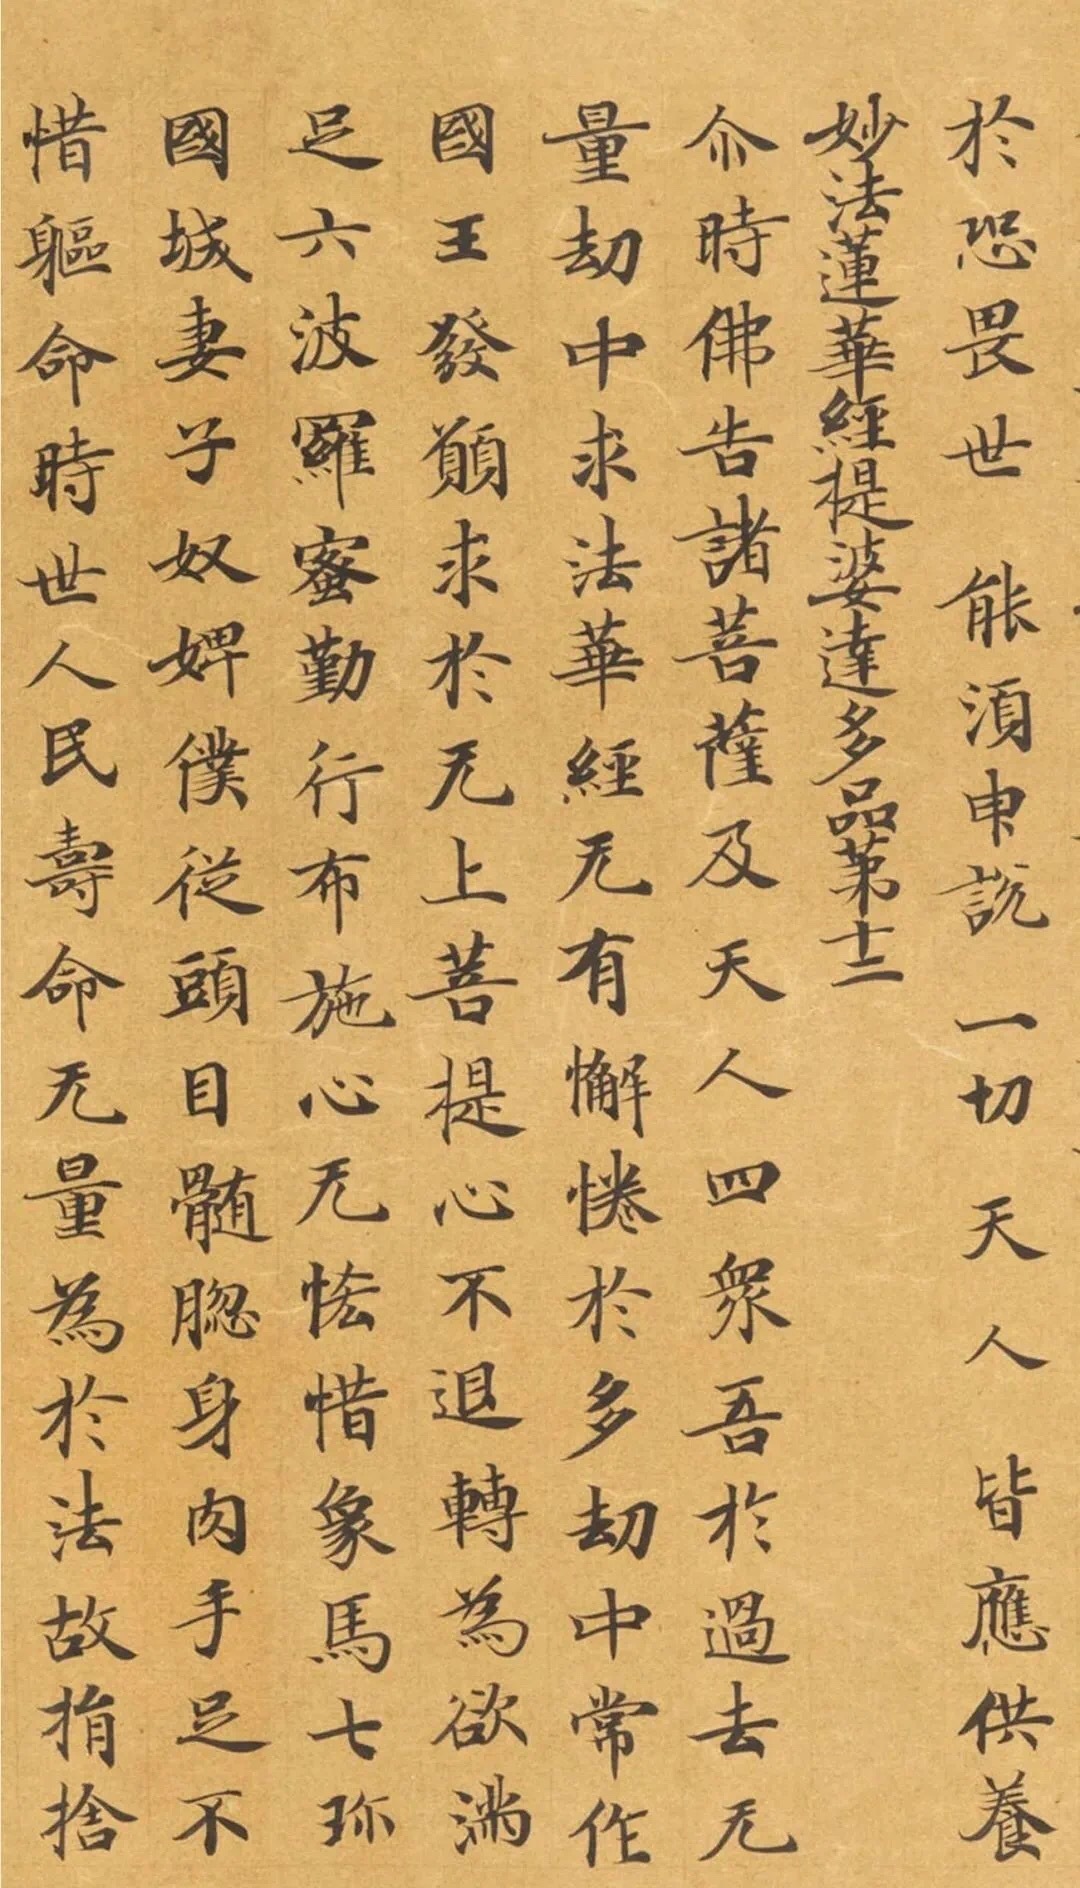 於恐畏世 能須申說 一切天人 皆應供養
妙法蓮華經提婆達多品第十二
尒時佛告諸菩薩及天人四眾吾於過去无
量劫中求法華經无有懈惓於多劫中常作
國王發願求於无上菩提心不退轉為欲滿
足六波羅蜜勤行布施心无悋惜象馬七珎
國城妻子奴婢僕從頭目髓𦛁身肉手足不
惜軀命時世人民壽命无量為於法故捐捨